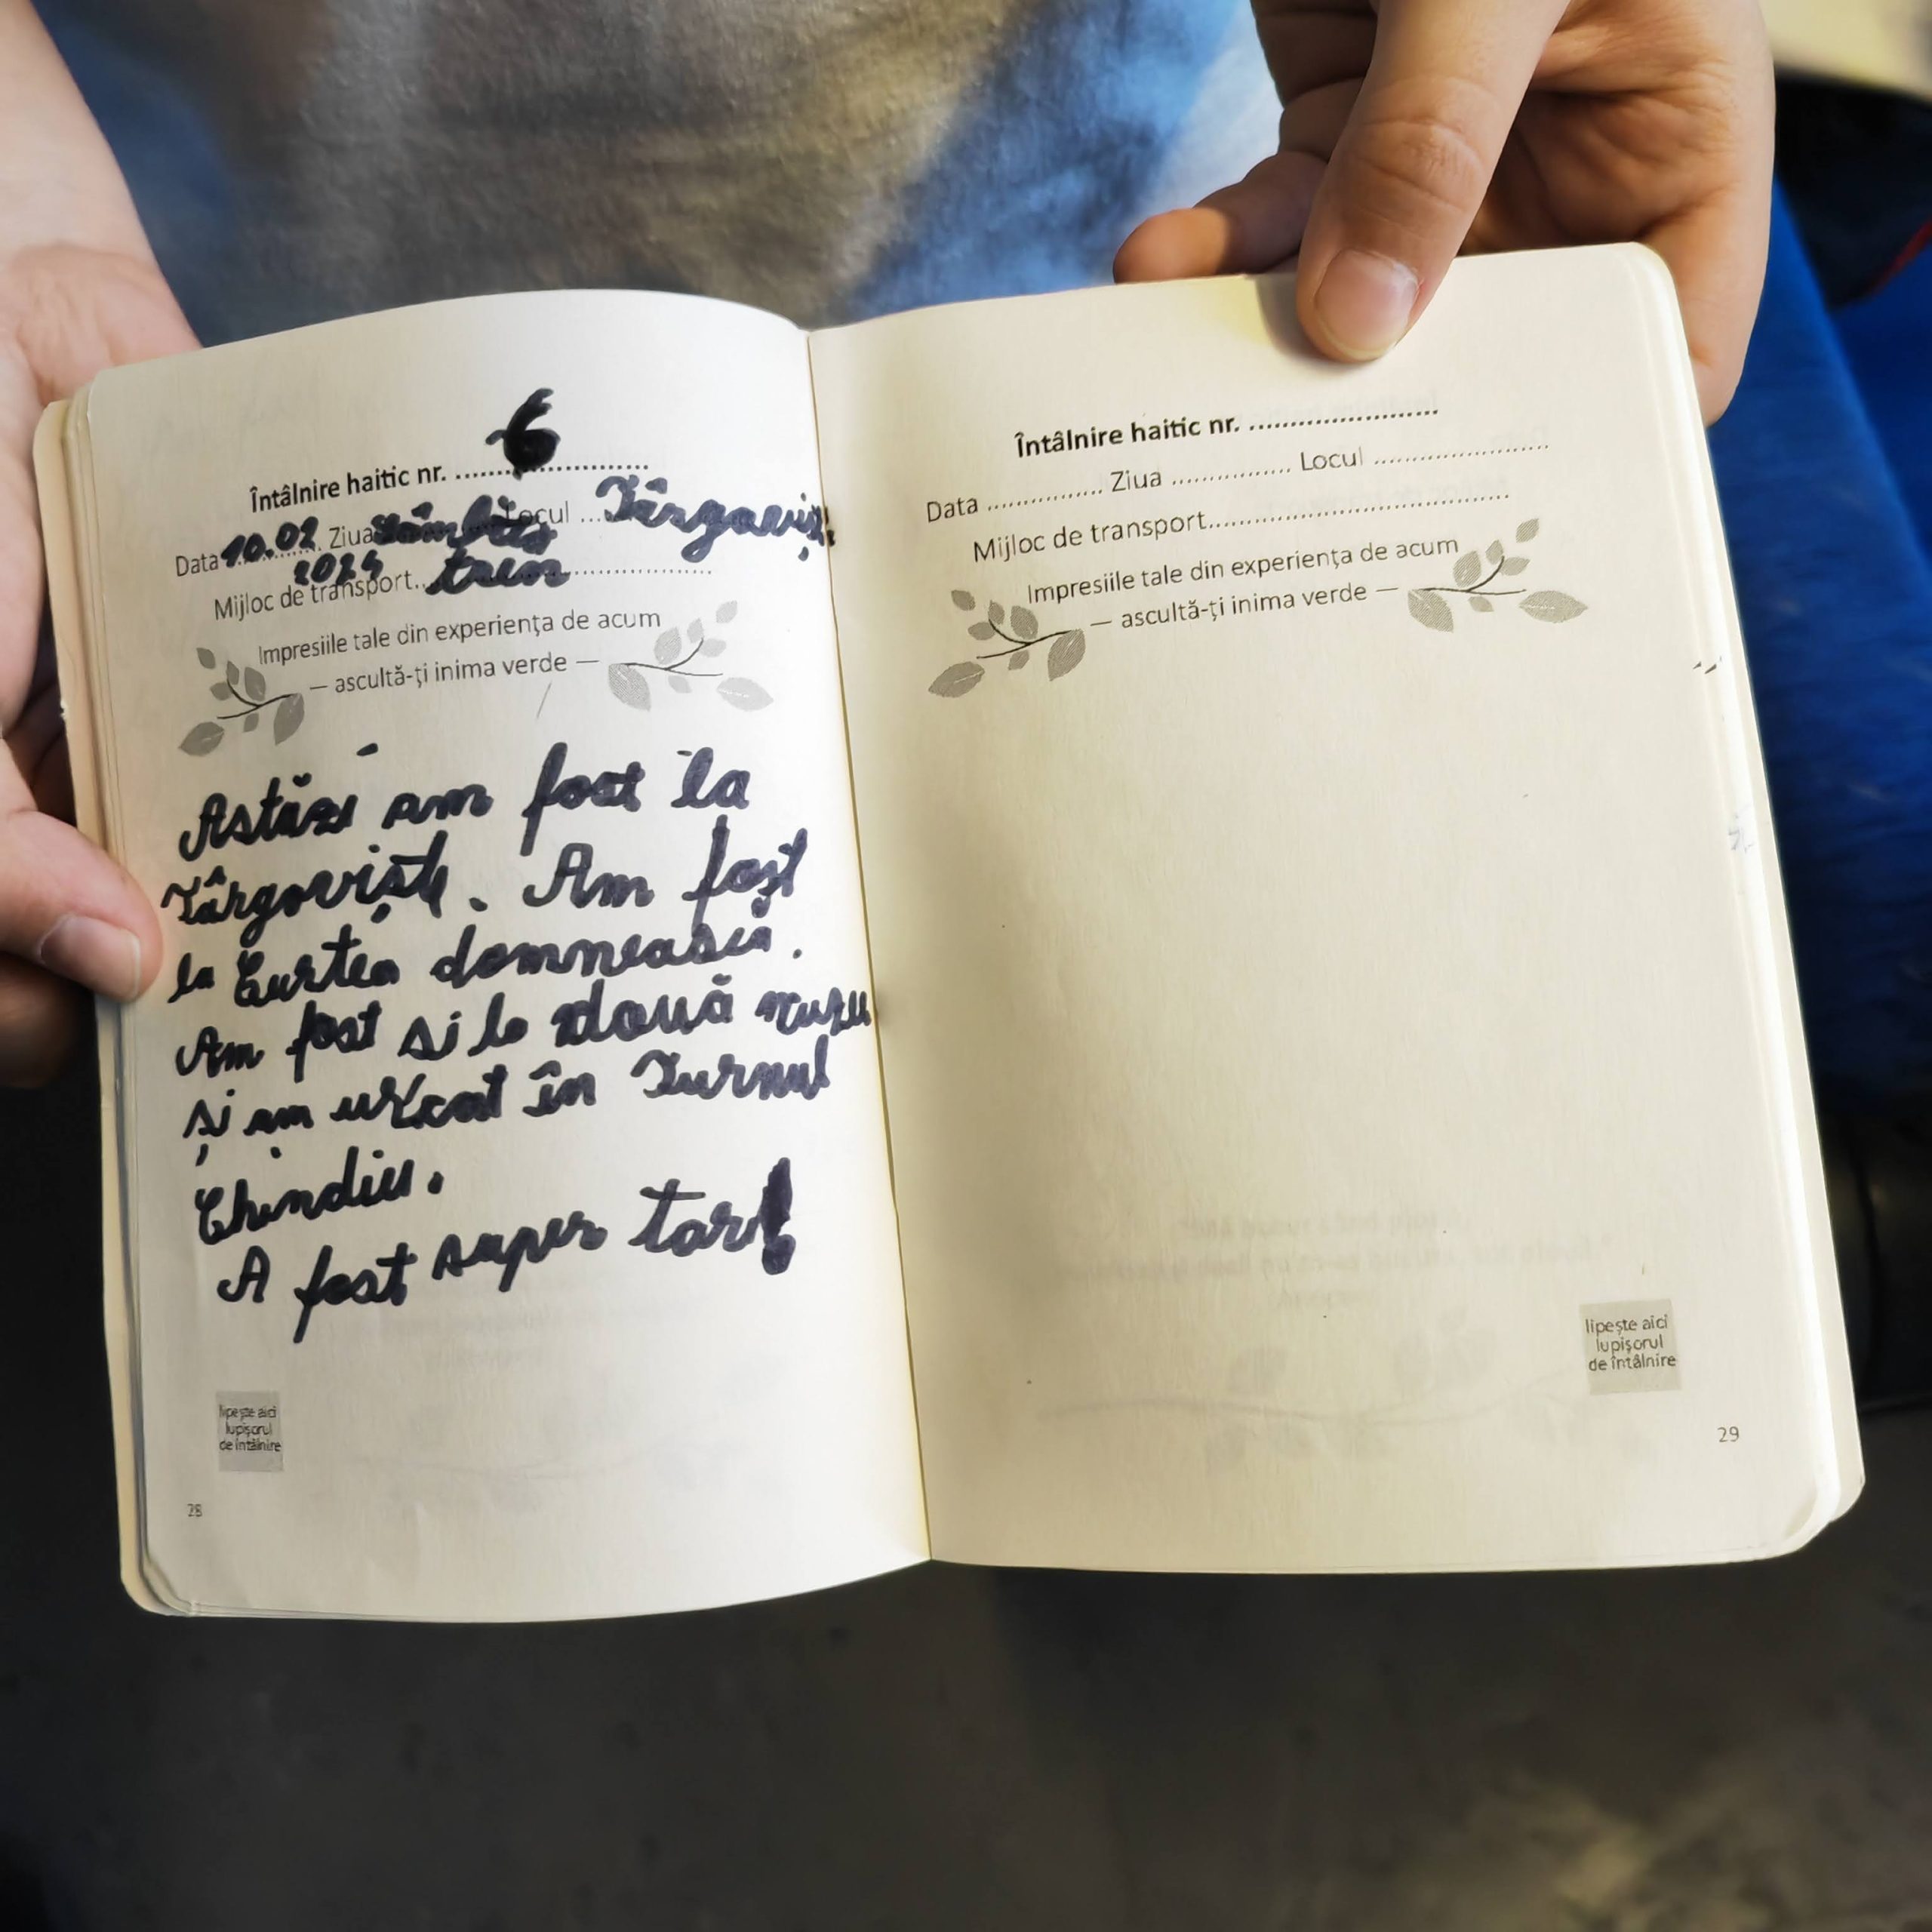 Întâlnire haitic nr. ........6............
Data 10.02 2024 Ziua sâmbătă Locul ... Târgoviște
Mijloc de transport... tren ................
Impresiile tale din experiența de acum
— ascultă-ți inima verde —
Astăzi am fost la
Târgoviște. Am fost
la Curtea domnească.
Am fost si la două muzee
și am urcat în Turnul
Chindiei.
A fost super tare!
lipește aici
lupișorul
de întâlnire
28
Întâlnire haitic nr. ........................
Data ................ Ziua ................ Locul ........................
Mijloc de transport........................................
Impresiile tale din experiența de acum
— ascultă-ți inima verde —
lipește aici
lupișorul
de întâlnire
29